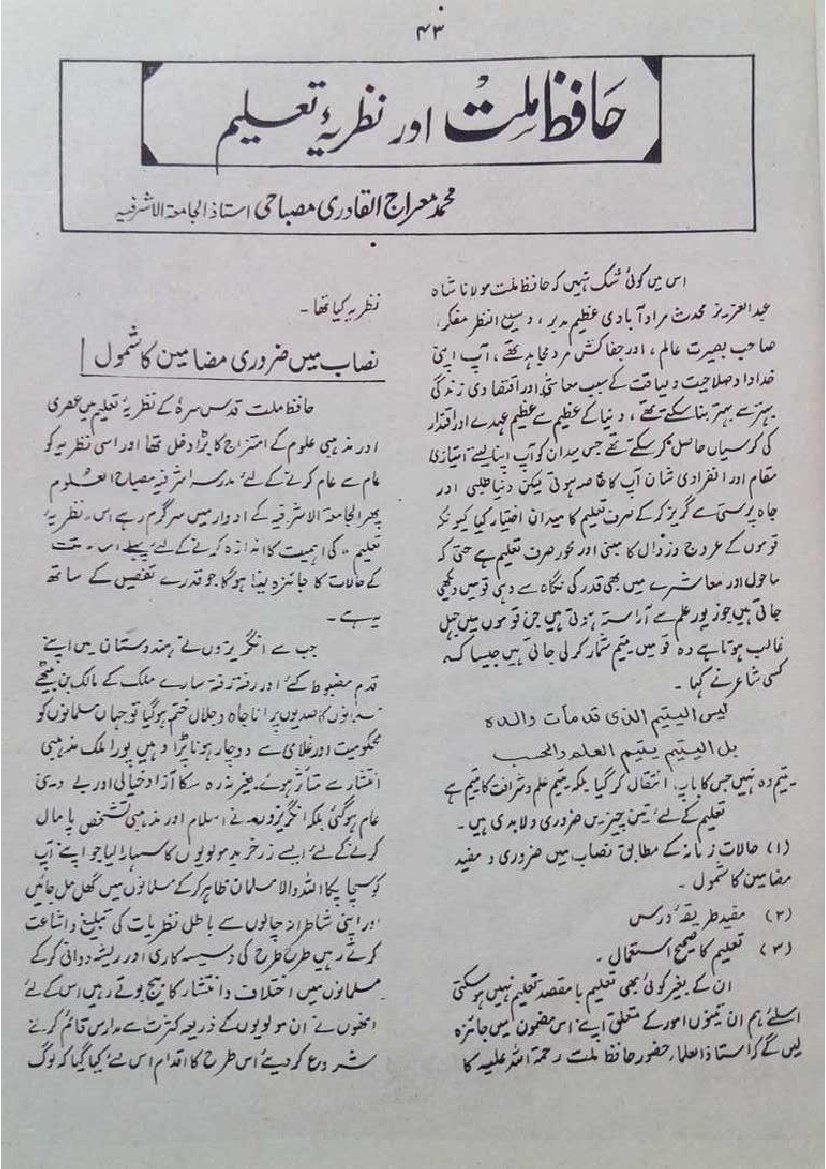 ۴۳
حافظ ملت اور نظریۂ تعلیم
محمد معراج القادری مصباحی استاذ الجامعۃ الاشرفیہ
اس میں کوئی شک نہیں کہ حافظ ملت مولانا شاہ
عبدالعزیز محدث مرادآبادی عظیم مدبر، وسیع النظر مفکر،
صاحب بصیرت عالم، اور جفاکش مرد مجاہد تھے، آپ اپنی
خداداد صلاحیت و لیاقت کے سبب معاشی اور اقتصادی زندگی
بہتر سے بہتر بنا سکتے تھے، دنیا کے عظیم سے عظیم عہدے اور اقتدار
کی کرسیاں حاصل کر سکتے تھے جس میدان کو آپ اپناتے امتیازی
مقام اور انفرادی شان آپ کا خاصہ ہوتی لیکن دنیا طلبی اور
جاہ پرستی سے گریز کرکے صرف تعلیم کا میدان اختیار کیا کیونکہ
قوموں کے عروج و زوال کا مبنی اور محور صرف تعلیم ہے حتی کہ
ماحول اور معاشرے میں بھی قدر کی نگاہ سے وہی قومیں دیکھی
جاتی ہیں جو زیور علم سے آراستہ ہوتی ہیں جن قوموں میں جہل
غالب ہوتا ہے وہ قومیں یتیم شمار کرلی جاتی ہیں جیسا کہ
کسی شاعر نے کہا۔
لیس الیتیم الذی قد مات والدہ
بل الیتیم یتیم العلم والحسب
یتیم وہ نہیں جس کا باپ انتقال کر گیا بلکہ یتیم علم و شرافت کا یتیم ہے
تعلیم کے لئے تین چیزیں ضروری ولابدی ہیں۔
(۱) حالات زمانہ کے مطابق نصاب میں ضروری و مفید
مضامین کا شمول۔
(۲) مفید طریقۂ درس
(۳) تعلیم کا صحیح استعمال۔
ان کے بغیر کوئی بھی تعلیم با مقصد تعلیم نہیں ہو سکتی
اسلئے ہم ان تینوں امور کے متعلق اپنے اس مضمون میں جائزہ
لیں گے کہ استاذ العلماء حضور حافظ ملت رحمۃ اللہ علیہ کا
نظریہ کیا تھا۔
نصاب میں ضروری مضامین کا شمول
حافظ ملت قدس سرہٗ کے نظریۂ تعلیم میں عصری
اور مذہبی علوم کے امتزاج کا بڑا دخل تھا اور اسی نظریہ کو
عام سے عام کرنے کے لئے مدرسہ اشرفیہ مصباح العلوم
پھر الجامعۃ الاشرفیہ کے ادوار میں سرگرم رہے اس "نظریۂ
تعلیم" کی اہمیت کا اندازہ کرنے کے لئے پہلے اس وقت
کے حالات کا جائزہ لینا ہوگا جو قدرے تفصیل کے ساتھ
یہ ہے۔
جب سے انگریزوں نے ہندوستان میں اپنے
قدم مضبوط کئے اور رفتہ رفتہ سارے ملک کے مالک بن بیٹھے
مسلمانوں کا صدیوں پرانا جاہ و جلال ختم ہوگیا تو جہاں مسلمانوں کو
محکومیت اور غلامی سے دوچار ہونا پڑا وہیں پورا ملک مذہبی
انتشار سے متاثر ہوئے بغیر نہ رہ سکا آزاد خیالی اور بے دینی
عام ہوگئی بلکہ انگریزوں نے اسلام اور مذہبی تشخص پامال
کرنے کے لئے ایسے زرخرید مولویوں کا سہارا لیا جو اپنے آپ
کو سچا پکا اللہ والا مسلمان ظاہر کرکے مسلمانوں میں گھل مل جائیں
اور اپنی شاطرانہ چالوں سے باطل نظریات کی تبلیغ و اشاعت
کرتے رہیں طرح طرح کی دسیسہ کاری اور ریشہ دوانی کرکے
مسلمانوں میں اختلاف و انتشار کا بیج بوتے رہیں اس کے لئے
انھوں نے ان مولویوں کے ذریعہ کثرت سے مدارس قائم کرنے
شروع کردیئے اس طرح کا اقدام اس لئے کیا گیا کہ لوگ